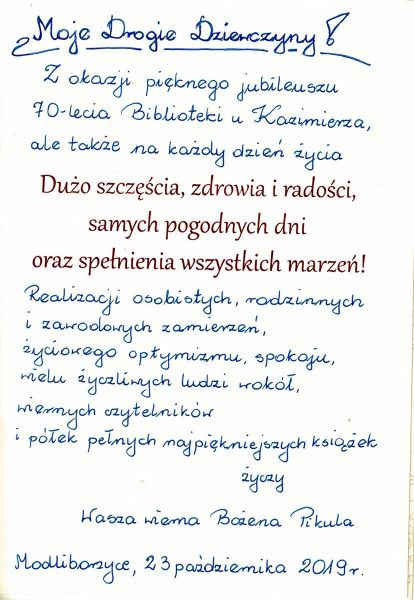 Moje Drogie Dziewczyny!
Z okazji pięknego jubileuszu
70-lecia Biblioteki u Kazimierza,
ale także na każdy dzień życia
Dużo szczęścia, zdrowia i radości,
samych pogodnych dni
oraz spełnienia wszystkich marzeń!
Realizacji osobistych, rodzinnych
i zawodowych zamierzeń,
życiowego optymizmu, spokoju,
wielu życzliwych ludzi wokół,
wiernych czytelników
i półek pełnych najpiękniejszych książek
życzy
Wasza wierna Bożena Pikula
Modliborzyce, 23 października 2019r.